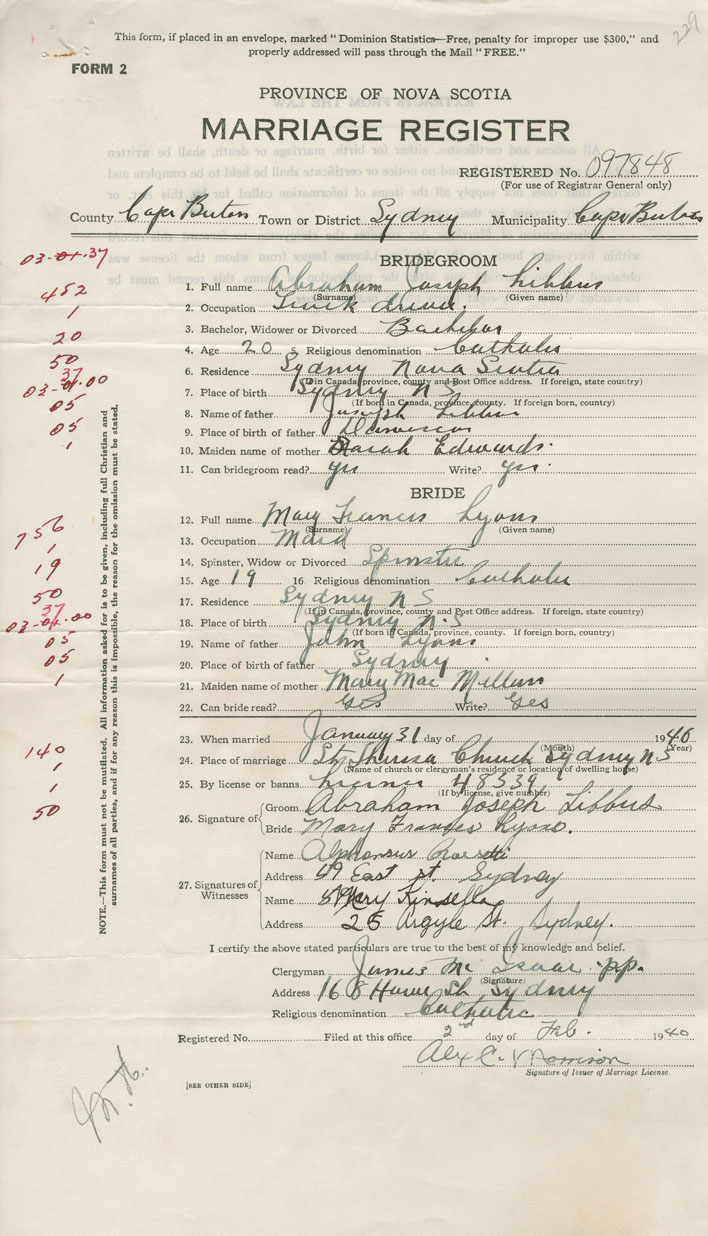 229
This form, if placed in an envelope, marked "Dominion Statistics—Free, penalty for improper use $300," and
properly addressed will pass through the Mail "FREE."
FORM 2
PROVINCE OF NOVA SCOTIA
MARRIAGE REGISTER
REGISTERED No. 097848
(For use of Registrar General only)
County Cape Breton Town or District Sydney Municipality Cape Breton
03-01-37
BRIDEGROOM
452
1. Full name Abraham Joseph Libbus
(Surname) (Given name)
1
2. Occupation Truck driver.
3. Bachelor, Widower or Divorced Bachelor
20
4. Age 20 5. Religious denomination Catholic
50
6. Residence Sydney Nova Scotia
(If in Canada, province, county and Post Office address. If foreign, state country)
37
03-01-00
7. Place of birth Sydney N S
(If born in Canada, province, county. If foreign born, country)
05
8. Name of father Joseph Libbus
05
9. Place of birth of father Damascus
1
10. Maiden name of mother Sarah Edwards.
11. Can bridegroom read? yes Write? yes.
BRIDE
756
12. Full name Mary Francis Lyons
(Surname) (Given name)
1
13. Occupation Maid
19
14. Spinster, Widow or Divorced Spinster
15. Age 19 16. Religious denomination Catholic
50
17. Residence Sydney N S
(If in Canada, province, county and Post Office address. If foreign, state country)
37
03-01-00
18. Place of birth Sydney N.S
(If born in Canada, province, county. If foreign born, country)
05
19. Name of father John Lyons
05
20. Place of birth of father Sydney
1
21. Maiden name of mother Mary Mac
22. Can bride read? yes Write? yes
23. When married January 31 day of 1940
(Month) (Year)
140
24. Place of marriage St Theresa Church Sydney N S
(Name of church or clergyman's residence or location of dwelling house)
1
25. By license or banns License 48539
(If by license, give number)
1
50
26. Signature of Groom Abraham Joseph Libbus
Bride Mary Frances Lyons.
27. Signatures of Witnesses
Name Alphonsus
Address 49 East st. Sydney
Name Mary Kinsella
Address 25 Argyle St. Sydney.
I certify the above stated particulars are true to the best of my knowledge and belief.
Clergyman James Mc Isaac p.p.
(Signature)
Address 168 Sydney
Religious denomination Catholic
Registered No. Filed at this office 2nd day of Feb. 1940
Alex C. Morrison
Signature of Issuer of Marriage License.
[SEE OTHER SIDE]
NOTE.—This form must not be mutilated. All information asked for is to be given, including full Christian and
surnames of all parties, and if for any reason this is impossible, the reason for the omission must be stated.